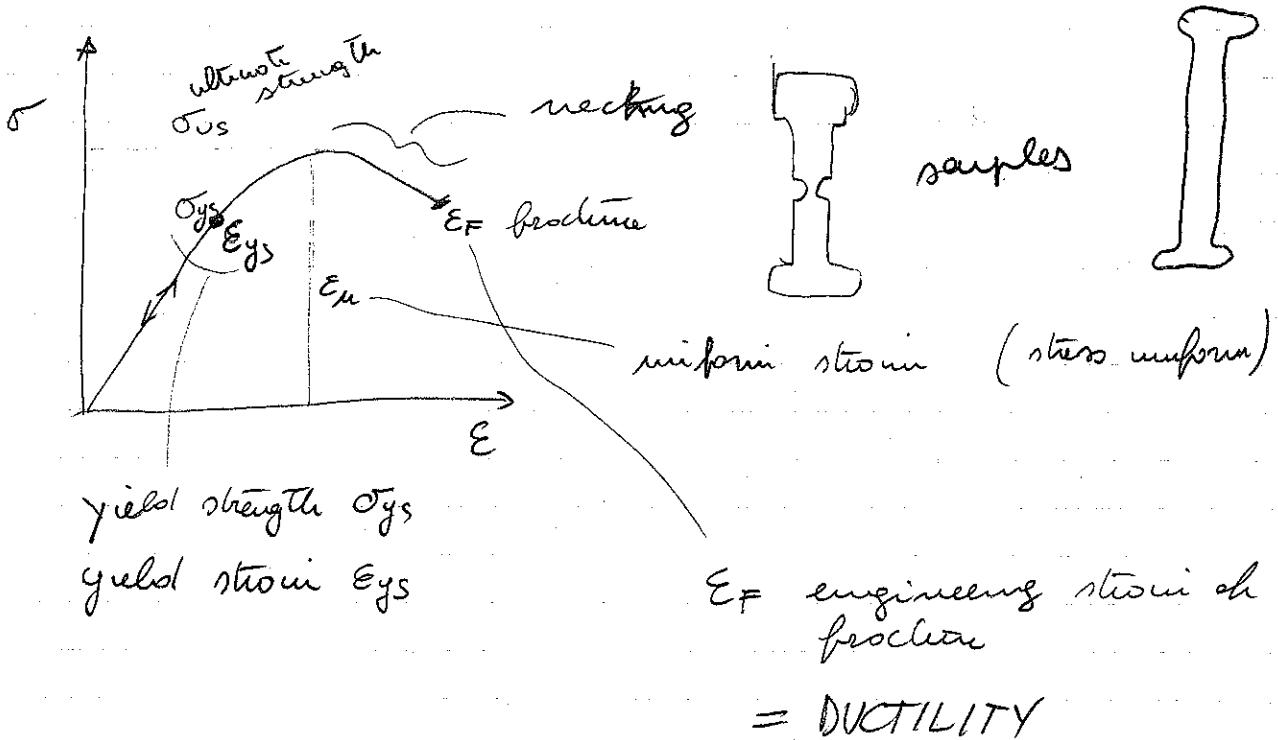 σ
ultimate strength
σus
necking
samples
σys
εys
εF fracture
εu
uniform strain (stress uniform)
ε
yield strength σys
yield strain εys
εF engineering strain of
fracture
= DUCTILITY